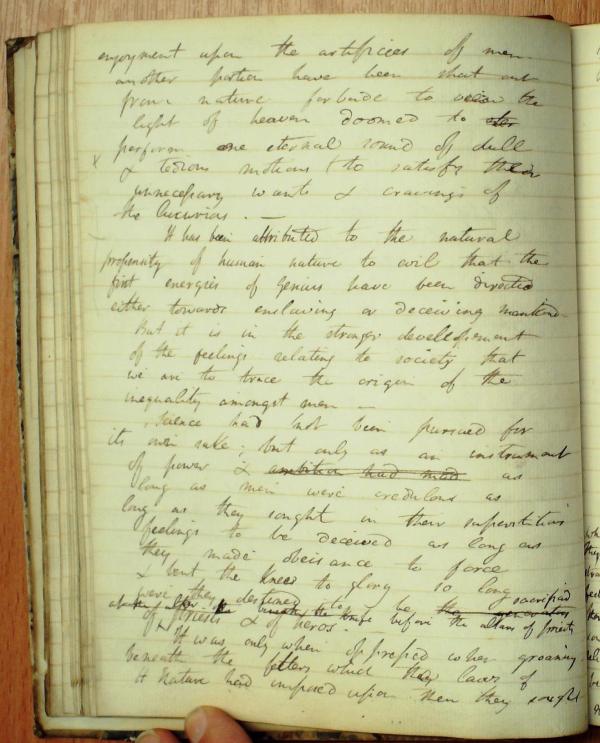 enjoyment upon the artifices of men
another portion have been shut out
from nature forbade to view the
light of heaven doomed to
perform one eternal round of dull
& tedious motions to satisfy their
unnecessary wants & cravings of
the luxurious. —
It has been attributed to the natural
propensity of human nature to evil that the
first energies of Genius have been directed
either towards enslaving or deceiving mankind
But it is in the stronger developement
of the feelings relating to society that
we are to trace the origin of the
inequality amongst men —
Science had not been pursued for
its own sake; but only as an instrument
of power & ambition had made as
long as men were credulous as
long as they sought in their superstitious
feelings to be deceived as long as
they made obeisance to force
& bent the knees to glory so long
were they destined to be sacrificed
of priests & of heros. before the altars of priests
It was only when oppressed when groaning
beneath the fetters which the laws of
Nature had imposed upon them they sought